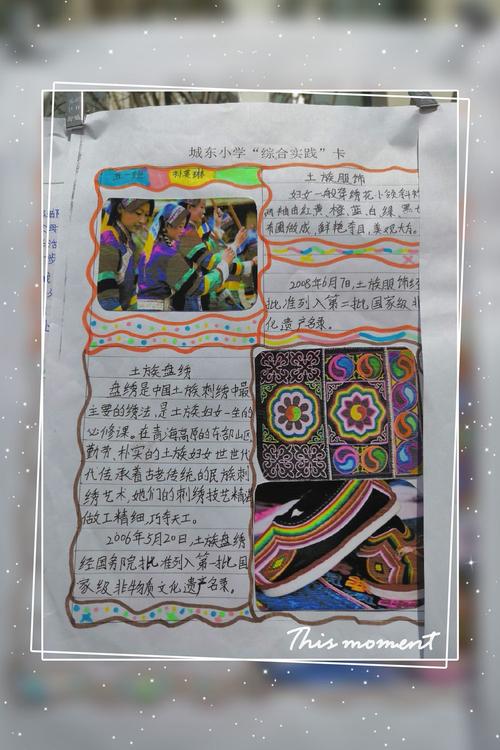 城东小学“综合实践”卡
土族服饰
妇女一般穿绣花小领斜衩
两袖由红黄橙蓝白绿黑七
布圈做成,鲜艳夺目,美观大方。
2008年6月7日,土族服饰经
批准列入第二批国家级非
化遗产名录。
土族盘绣
盘绣是中国土族刺绣中最
主要的绣法,是土族妇女一生的
必修课。在青海高原的东部山区
勤劳、朴实的土族妇女世世代
九传承着古老传统的民族刺
绣艺术,她们的刺绣技艺精湛
做工精细,巧夺天工。
2006年5月20日,土族盘绣
经国务院批准列入第一批国
家级非物质文化遗产名录。
This moment